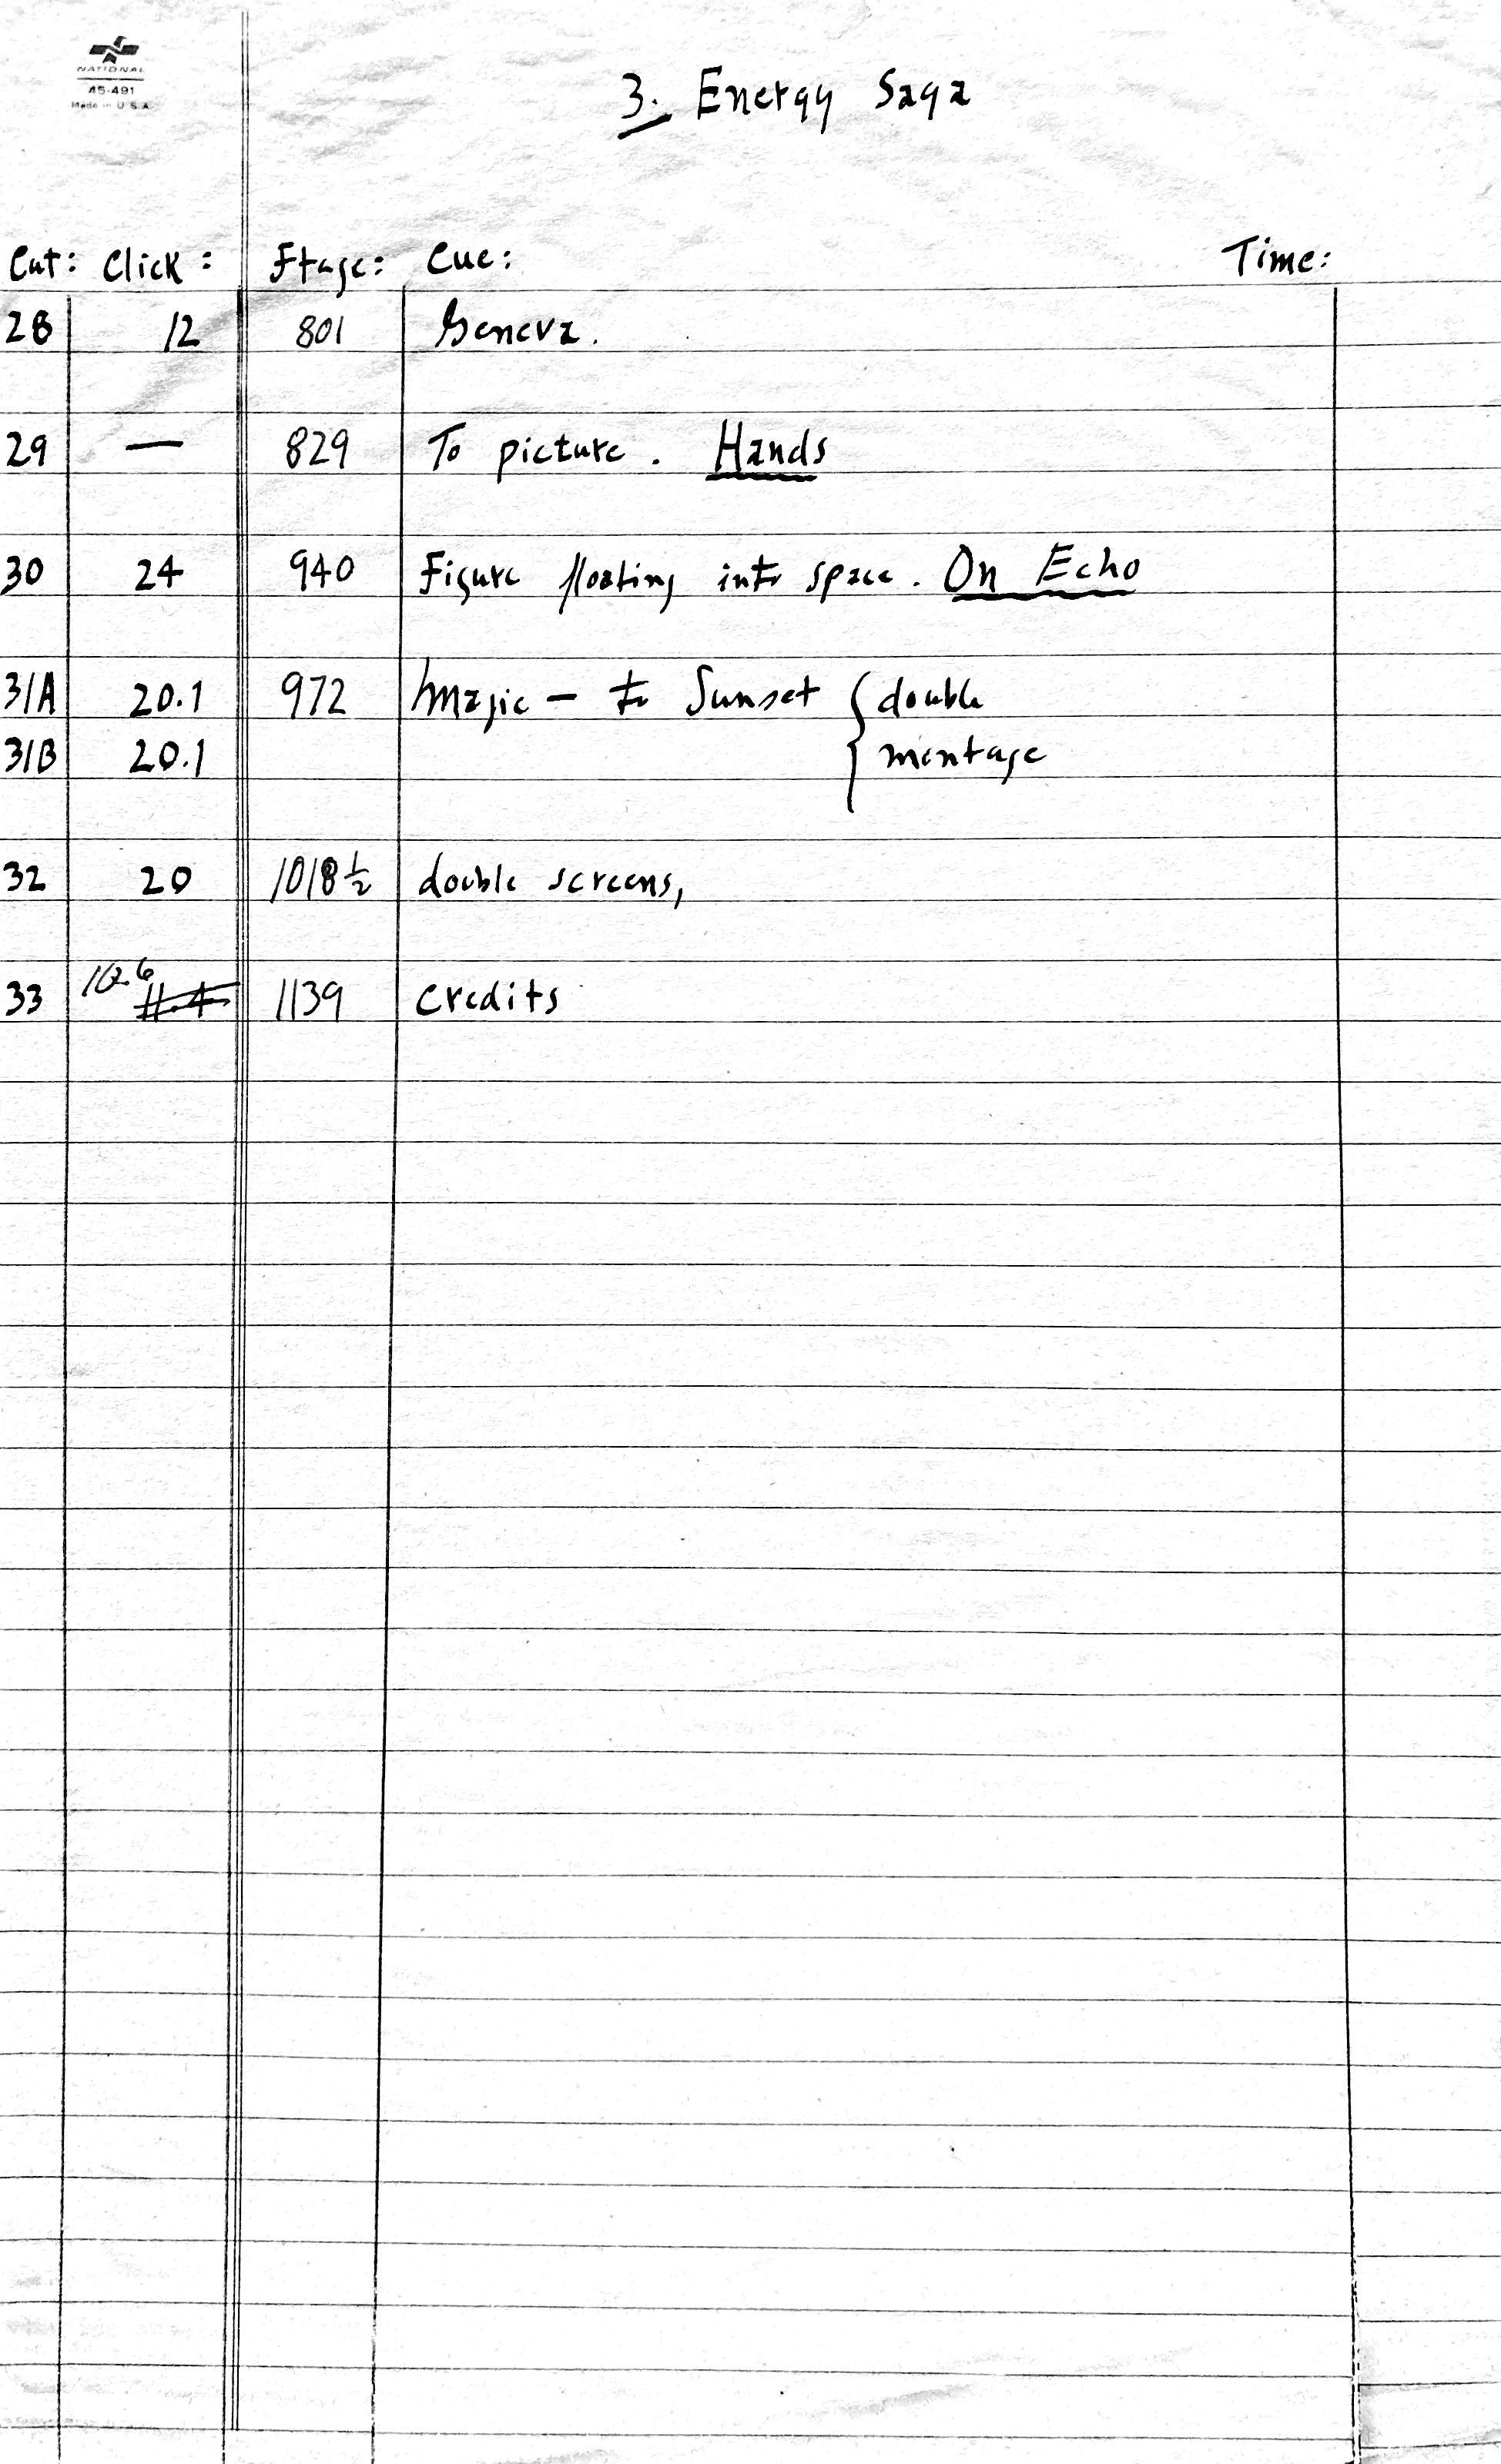 NATIONAL
45-491
Made in U.S.A.
3. Energy Saga
Cut: Click: Ftage: Cue: Time:
28 12 801 Geneva.
29 — 829 To picture. Hands
30 24 940 Figure floating into space. On Echo
31A 20.1 972 Magic — to Sunset { double
31B 20.1 montage
32 20 1018 ½ double screens,
33 10.6 11.4 1139 Credits